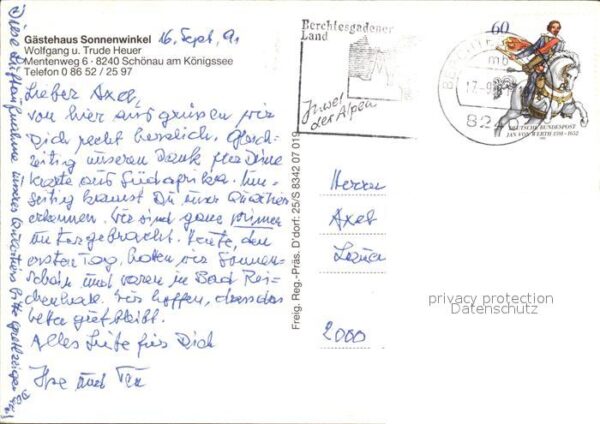 Gästehaus Sonnenwinkel 16. Sept. 91
Wolfgang u. Trude Heuer
Mentenweg 6 · 8240 Schönau am Königssee
Telefon 0 86 52 / 25 97
Lieber Axel,
von hier aus grüssen wir
Dich recht herzlich. Gleich-
zeitig unseren Dank für Deine
Karte aus Südafrika. Um-
seitig kannst Du unser Quartier
erkennen. Wir sind ganz prima
untergebracht. Heute, den
ersten Tag, hatten wir Sonnen-
schein und waren in Bad Rei-
chenhall. Wir hoffen, dass das
Wetter gut bleibt.
Alles Liebe für Dich
und
Diese Luftaufnahme unseres Quartiers bitte
Freig. Reg.-Präs. D'dorf: 25/S 8342 07 019
Berchtesgadener
Land
Juwel
der Alpen
60
mb
17.-9
82
DEUTSCHE BUNDESPOST
JAN VON WERTH 1591-1652
Herrn
Axel
2000
privacy protection
Datenschutz